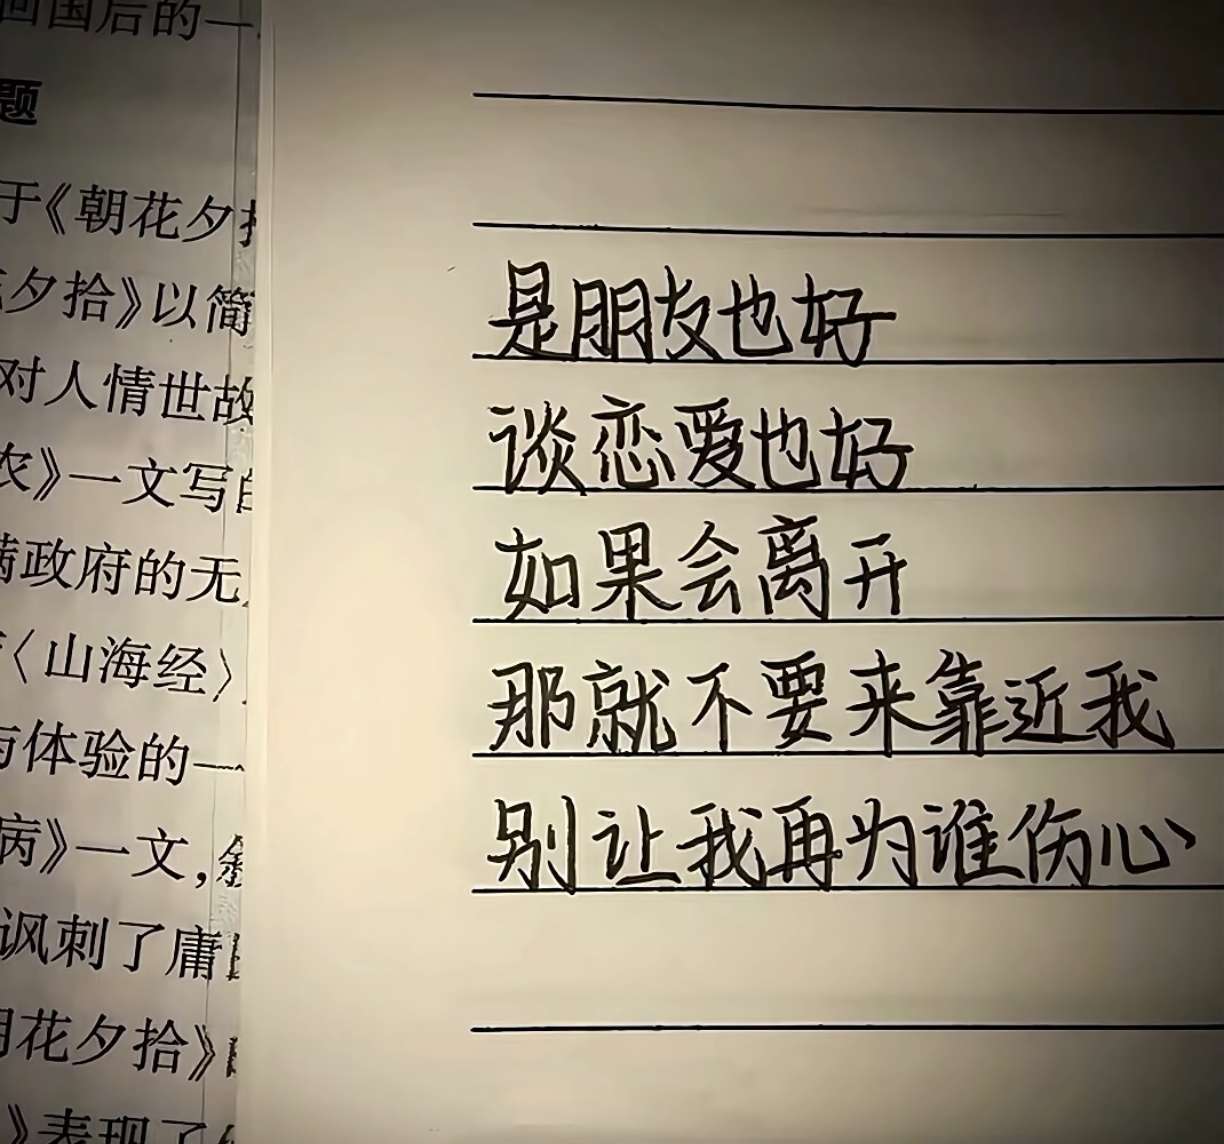 回国后的一
题
于《朝花夕拾
花夕拾》以简
对人情世故
农》一文写自
满政府的无
〈山海经〉
与体验的一
病》一文，
讽刺了庸
朝花夕拾》
》表现了
是朋友也好
谈恋爱也好
如果会离开
那就不要来靠近我
别让我再为谁伤心